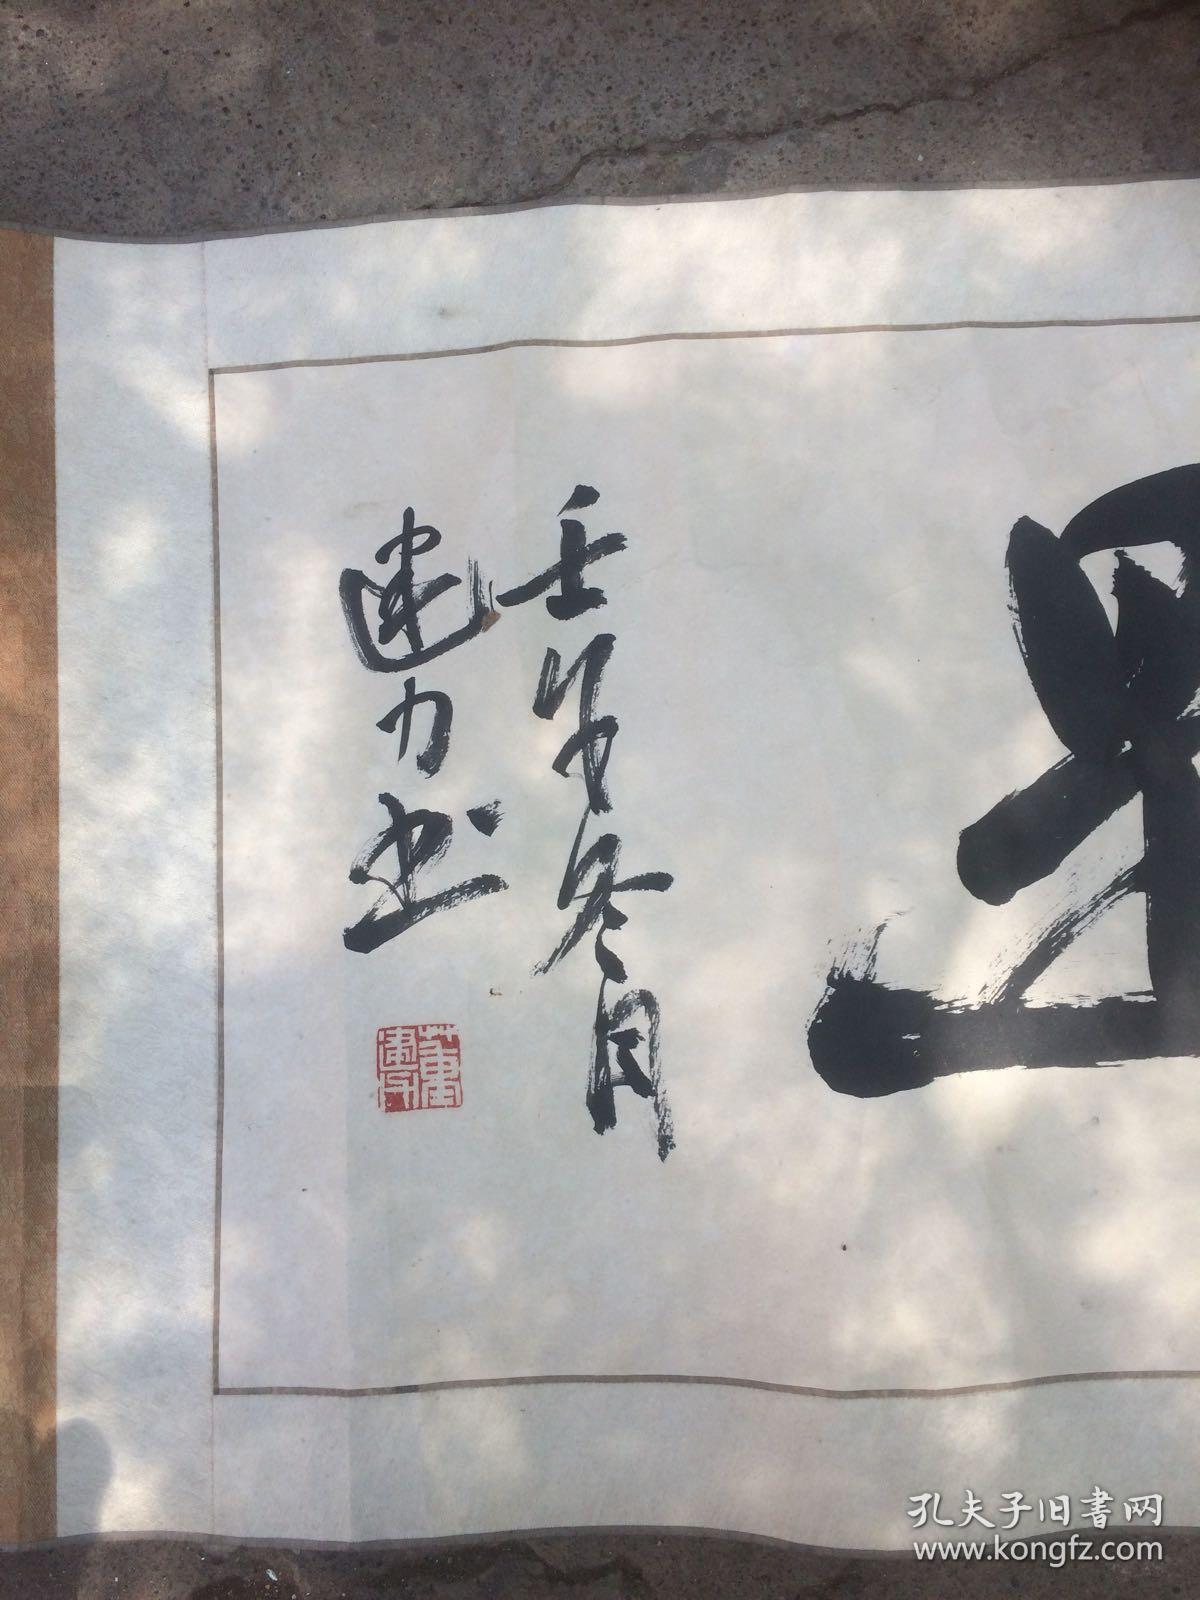 壬午冬月
建力书
董建力
孔夫子旧書网
www.kongfz.com